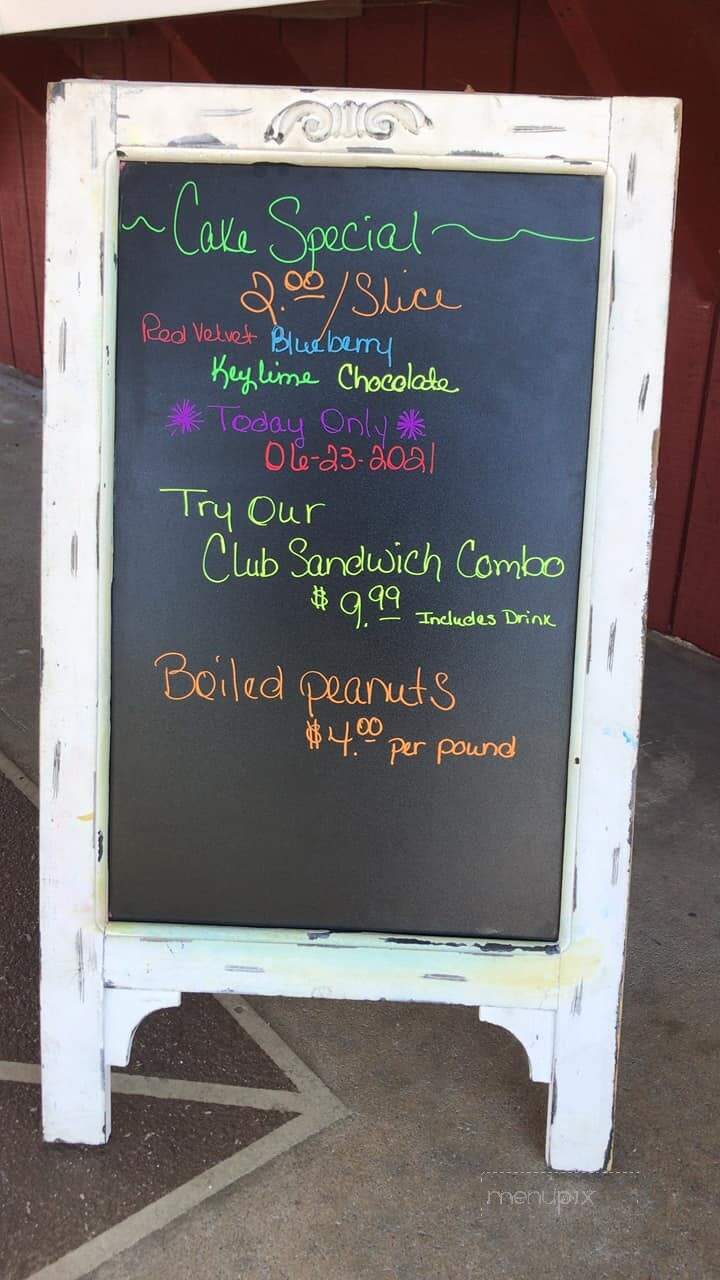 ~ Cake Special ~
2.00/Slice
Red Velvet Blueberry
Keylime Chocolate
* Today Only *
06-23-2021
Try Our
Club Sandwich Combo
$9.99 Includes Drink
Boiled peanuts
$4.00 per pound
menupix